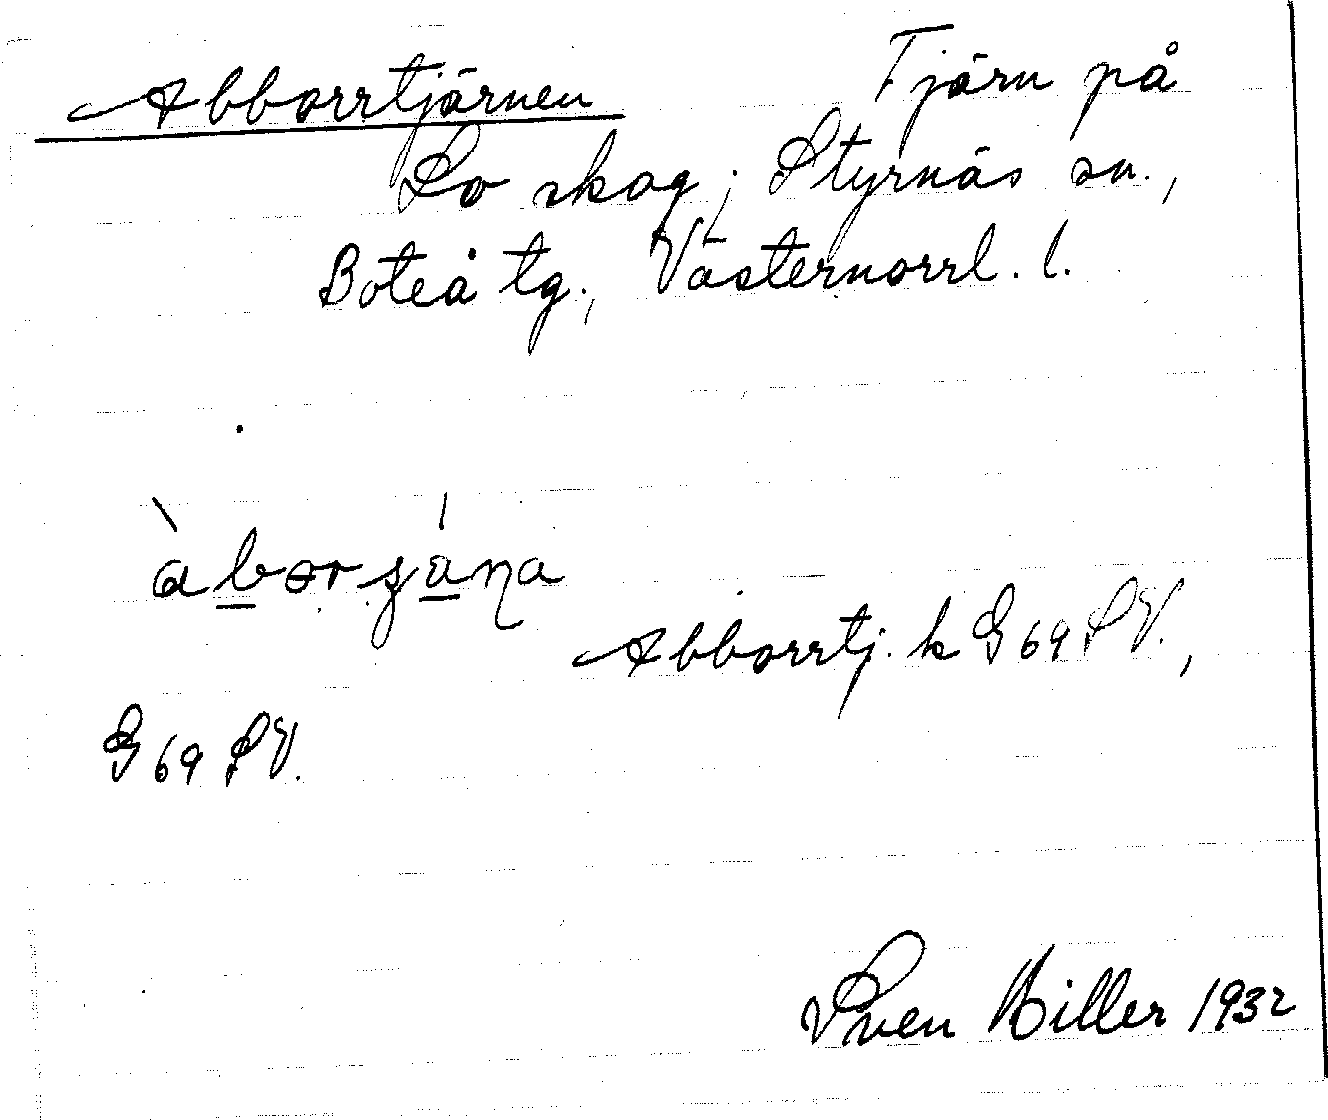 Abborrtjärnen Tjärn på
Lo skog; Styrnäs sn.,
Boteå tg., Västernorrl. l.
Abborrtj. k G 69 SV.,
G 69 SV.
Sven Hiller 1932